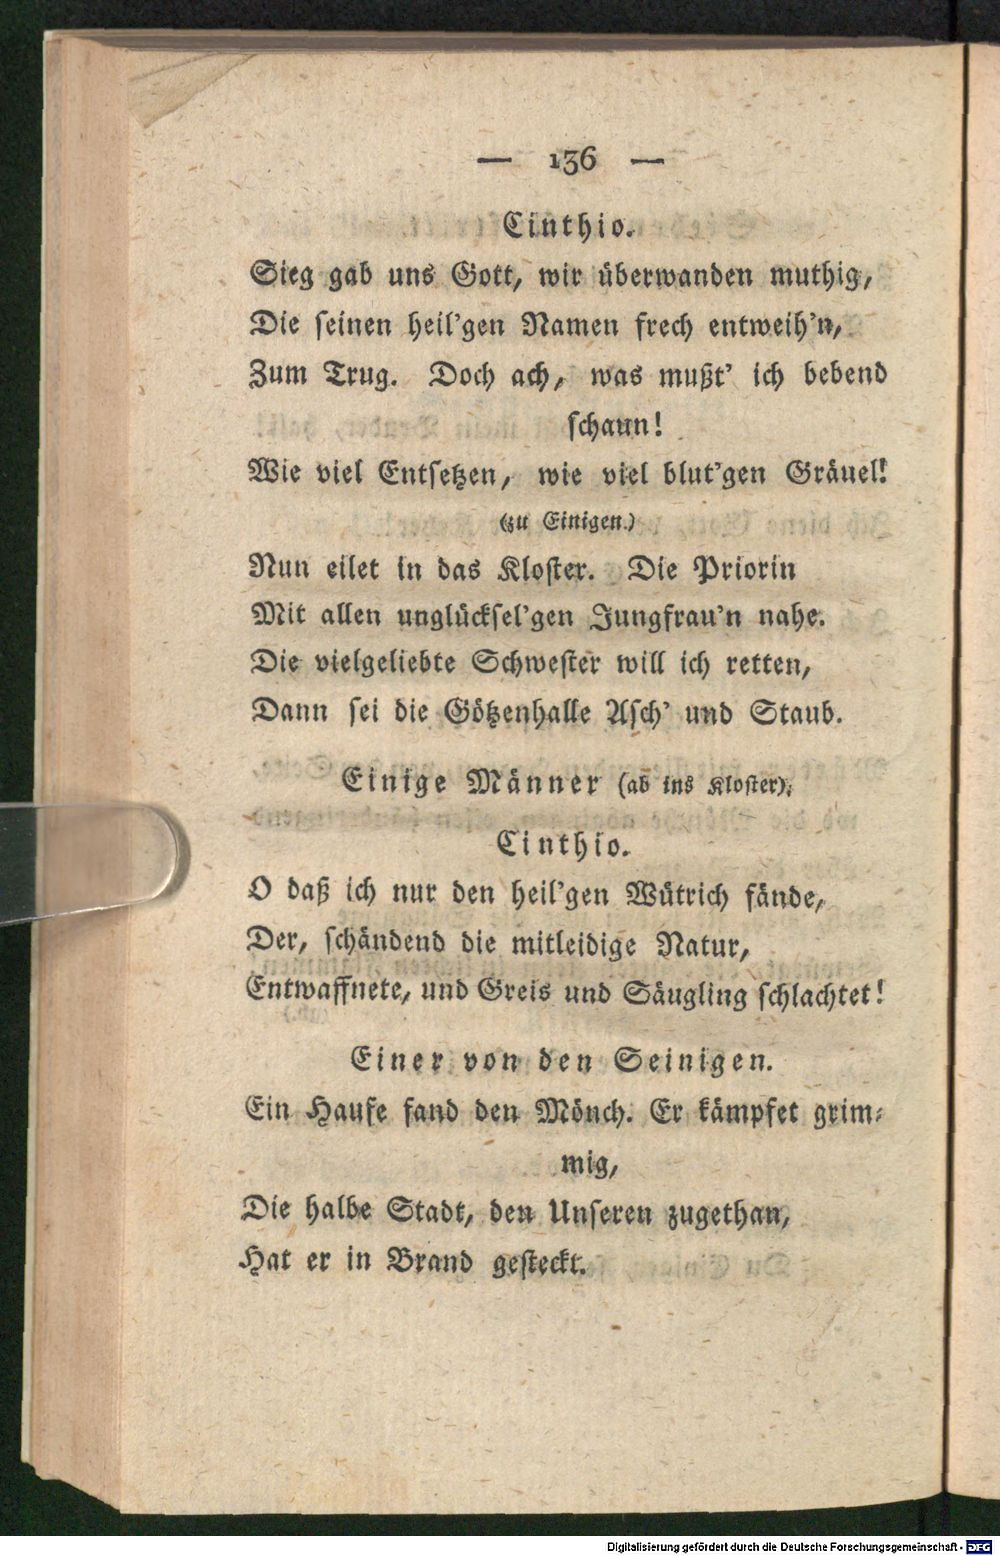 — 136 —
Cinthio.
Sieg gab uns Gott, wir überwanden muthig,
Die seinen heil'gen Namen frech entweih'n,
Zum Trug. Doch ach, was mußt' ich bebend
schaun!
Wie viel Entsetzen, wie viel blut'gen Gräuel!
(zu Einigen.)
Nun eilet in das Kloster. Die Priorin
Mit allen unglücksel'gen Jungfrau'n nahe.
Die vielgeliebte Schwester will ich retten,
Dann sei die Götzenhalle Asch' und Staub.
Einige Männer (ab ins Kloster).
Cinthio.
O daß ich nur den heil'gen Wütrich fände,
Der, schändend die mitleidige Natur,
Entwaffnete, und Greis und Säugling schlachtet!
Einer von den Seinigen.
Ein Haufe fand den Mönch. Er kämpfet grim-
mig,
Die halbe Stadt, den Unseren zugethan,
Hat er in Brand gesteckt.
Digitalisierung gefördert durch die Deutsche Forschungsgemeinschaft - DFG